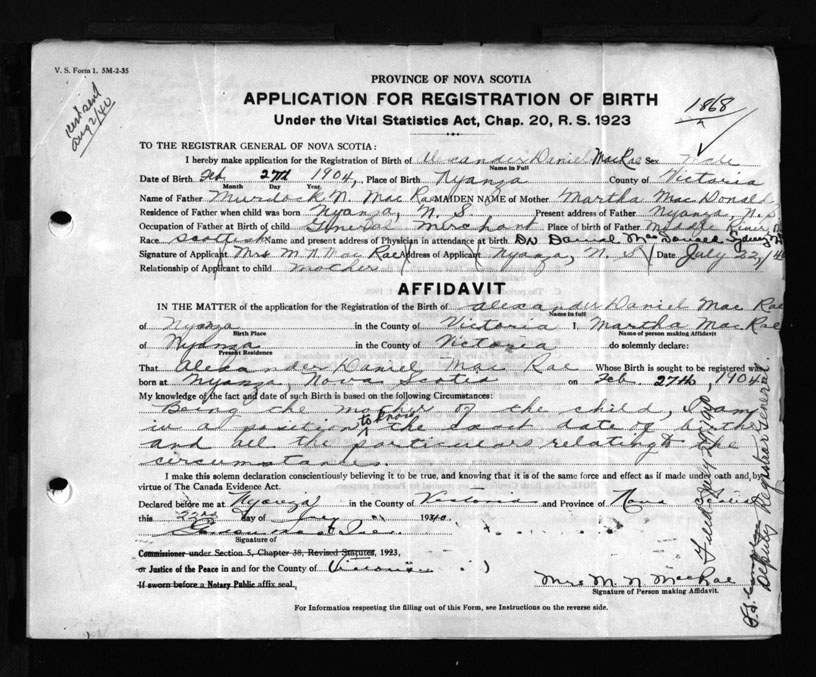 V. S. Form 1. 5M-2-35
Cert sent
Aug 2/40
PROVINCE OF NOVA SCOTIA
APPLICATION FOR REGISTRATION OF BIRTH
1868
Under the Vital Statistics Act, Chap. 20, R. S. 1923
TO THE REGISTRAR GENERAL OF NOVA SCOTIA:
I hereby make application for the Registration of Birth of Alexander Daniel MacRae Sex Male
Name in Full
Date of Birth Feb 27th 1904, Place of Birth Nyanza County of Victoria
Month Day Year
Name of Father Murdock N. Mac Rae MAIDEN NAME of Mother Martha MacDonald
Residence of Father when child was born Nyanza, N. S. Present address of Father Nyanza, N.S
Occupation of Father at Birth of child General Merchant Place of birth of Father Middle River
Race Scottish Name and present address of Physician in attendance at birth Dr Daniel Mac Sydney
Signature of Applicant Mrs M N Mac Rae Address of Applicant Nyanza, N. S Date July 22,/40
Relationship of Applicant to child mother
AFFIDAVIT
IN THE MATTER of the application for the Registration of the Birth of Alexander Daniel Mac Rae
Name in full
of Nyanza in the County of Victoria I, Martha MacRae
Birth Place Name of person making Affidavit
of Nyanza in the County of Victoria do solemnly declare:
Present Residence
That Alexander Daniel Mac Rae Whose Birth is sought to be registered was
born at Nyanza, Nova Scotia on Feb 27th, 1904
My knowledge of the fact and date of such Birth is based on the following Circumstances:
Being the mother of the child, I am
in a position to know the exact date of birth
and all the particulars relating to the
circumstances.
I make this solemn declaration conscientiously believing it to be true, and knowing that it is of the same force and effect as if made under oath and by
virtue of The Canada Evidence Act.
Declared before me at Nyanza in the County of Victoria and Province of Nova Scotia
this 22nd day of July 1940
Signature of
Commissioner under Section 5, Chapter 38, Revised Statutes, 1923,
or Justice of the Peace in and for the County of (Victoria)
If sworn before a Notary Public affix seal.
Mrs M. N MacRae
Signature of Person making Affidavit.
For Information respecting the filling out of this Form, see Instructions on the reverse side.
Filed July 29, 1940
Deputy Registrar General.